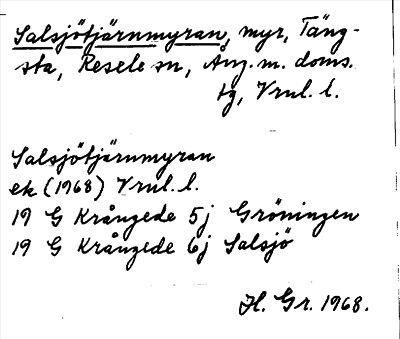 Salsjötjärnmyran, myr, Täng-
sta, Resele sn, Ång. m. doms.
tg, Vrnl. l.
Salsjötjärnmyran
ek (1968) Vrnl. l.
19 G Krångede 5j Gröningen
19 G Krångede 6j Salsjö
H. Gr. 1968.